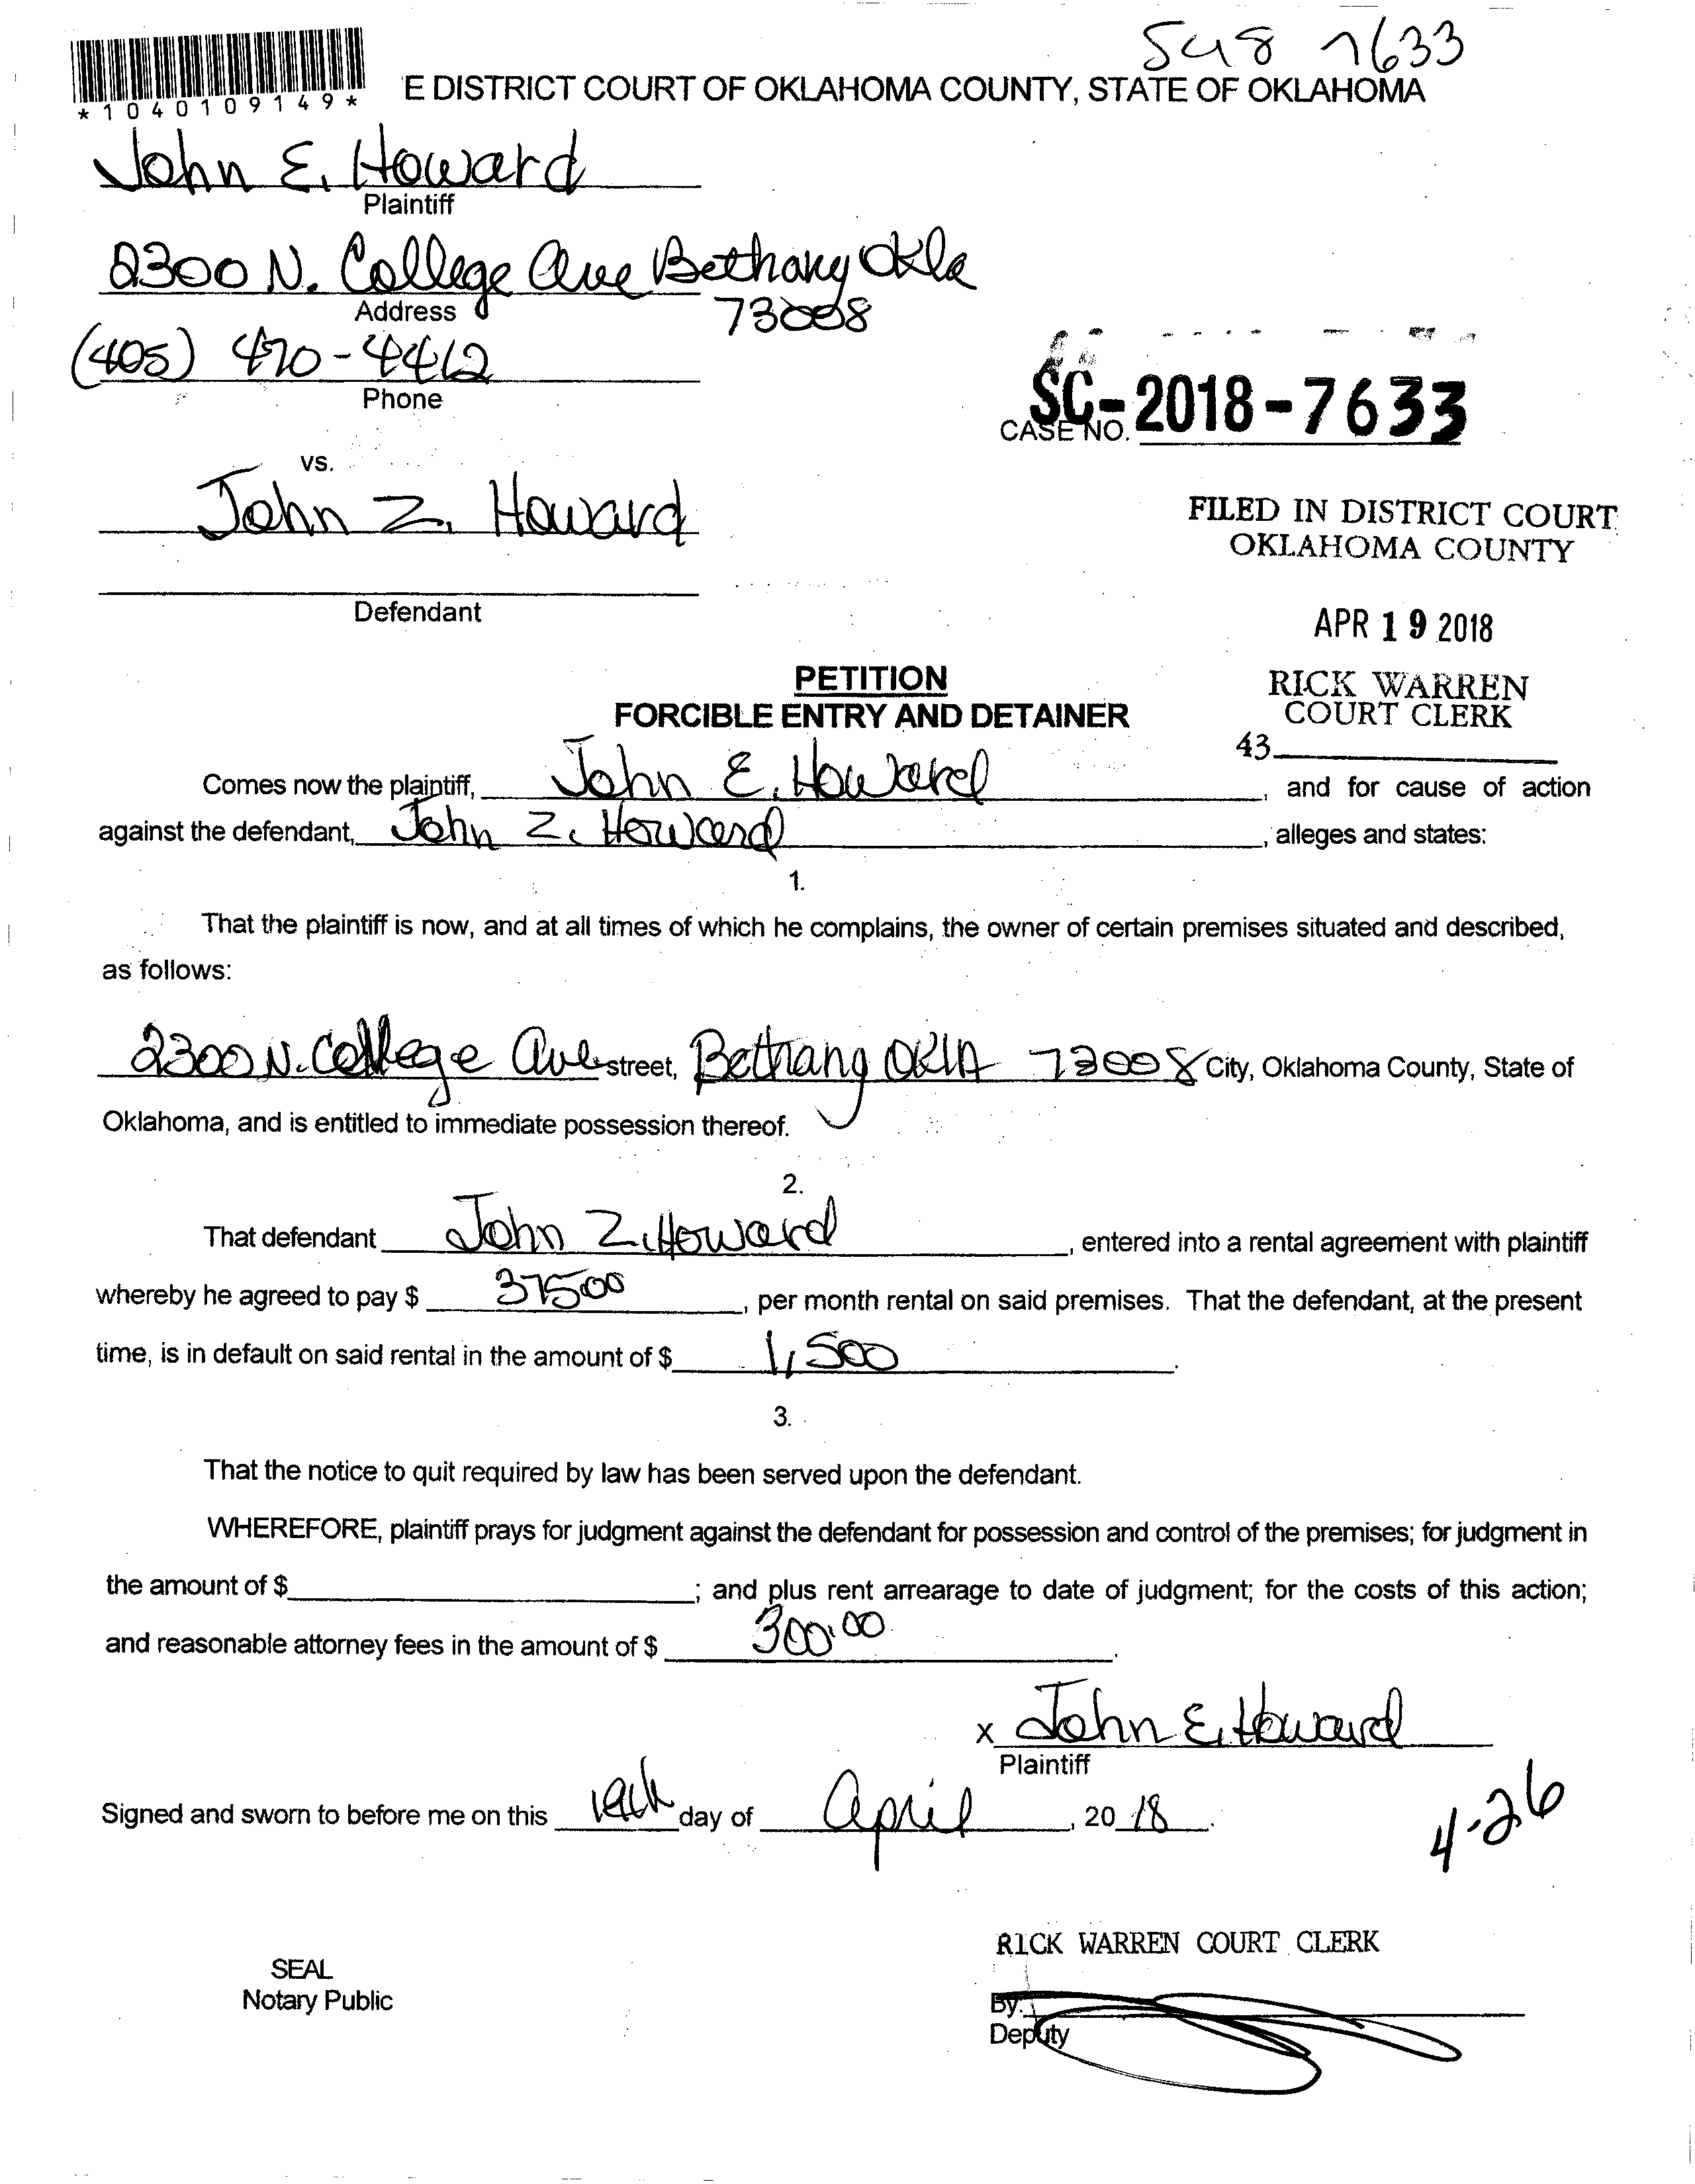 S418 7633
*1040109149*
E DISTRICT COURT OF OKLAHOMA COUNTY, STATE OF OKLAHOMA
John E. Howard
Plaintiff
2300 N. College Ave Bethany Okla
73008
Address
(405) 470-4412
Phone
SC-2018-7633
CASE NO.
vs.
John Z. Howard
Defendant
FILED IN DISTRICT COURT
OKLAHOMA COUNTY
APR 19 2018
RICK WARREN
COURT CLERK
43
PETITION
FORCIBLE ENTRY AND DETAINER
Comes now the plaintiff, John E. Howard, and for cause of action
against the defendant, John Z. Howard, alleges and states:
1.
That the plaintiff is now, and at all times of which he complains, the owner of certain premises situated and described,
as follows:
2300 N. College Ave street, Bethany OKLA 73008 City, Oklahoma County, State of
Oklahoma, and is entitled to immediate possession thereof.
2.
That defendant John Z. Howard, entered into a rental agreement with plaintiff
whereby he agreed to pay $ 37500, per month rental on said premises. That the defendant, at the present
time, is in default on said rental in the amount of $ 1,500.
3.
That the notice to quit required by law has been served upon the defendant.
WHEREFORE, plaintiff prays for judgment against the defendant for possession and control of the premises; for judgment in
the amount of $ ; and plus rent arrearage to date of judgment; for the costs of this action;
and reasonable attorney fees in the amount of $ 300.00.
x John E. Howard
Plaintiff
Signed and sworn to before me on this 19th day of April, 20 18.
4-26
RICK WARREN COURT CLERK
SEAL
Notary Public
By:
Deputy